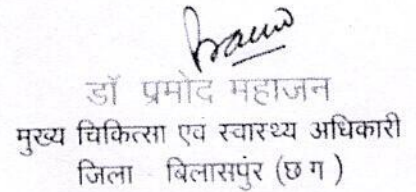 डॉ प्रमोद महाजन
मुख्य चिकित्सा एवं स्वास्थ्य अधिकारी
जिला बिलासपुर (छ ग )